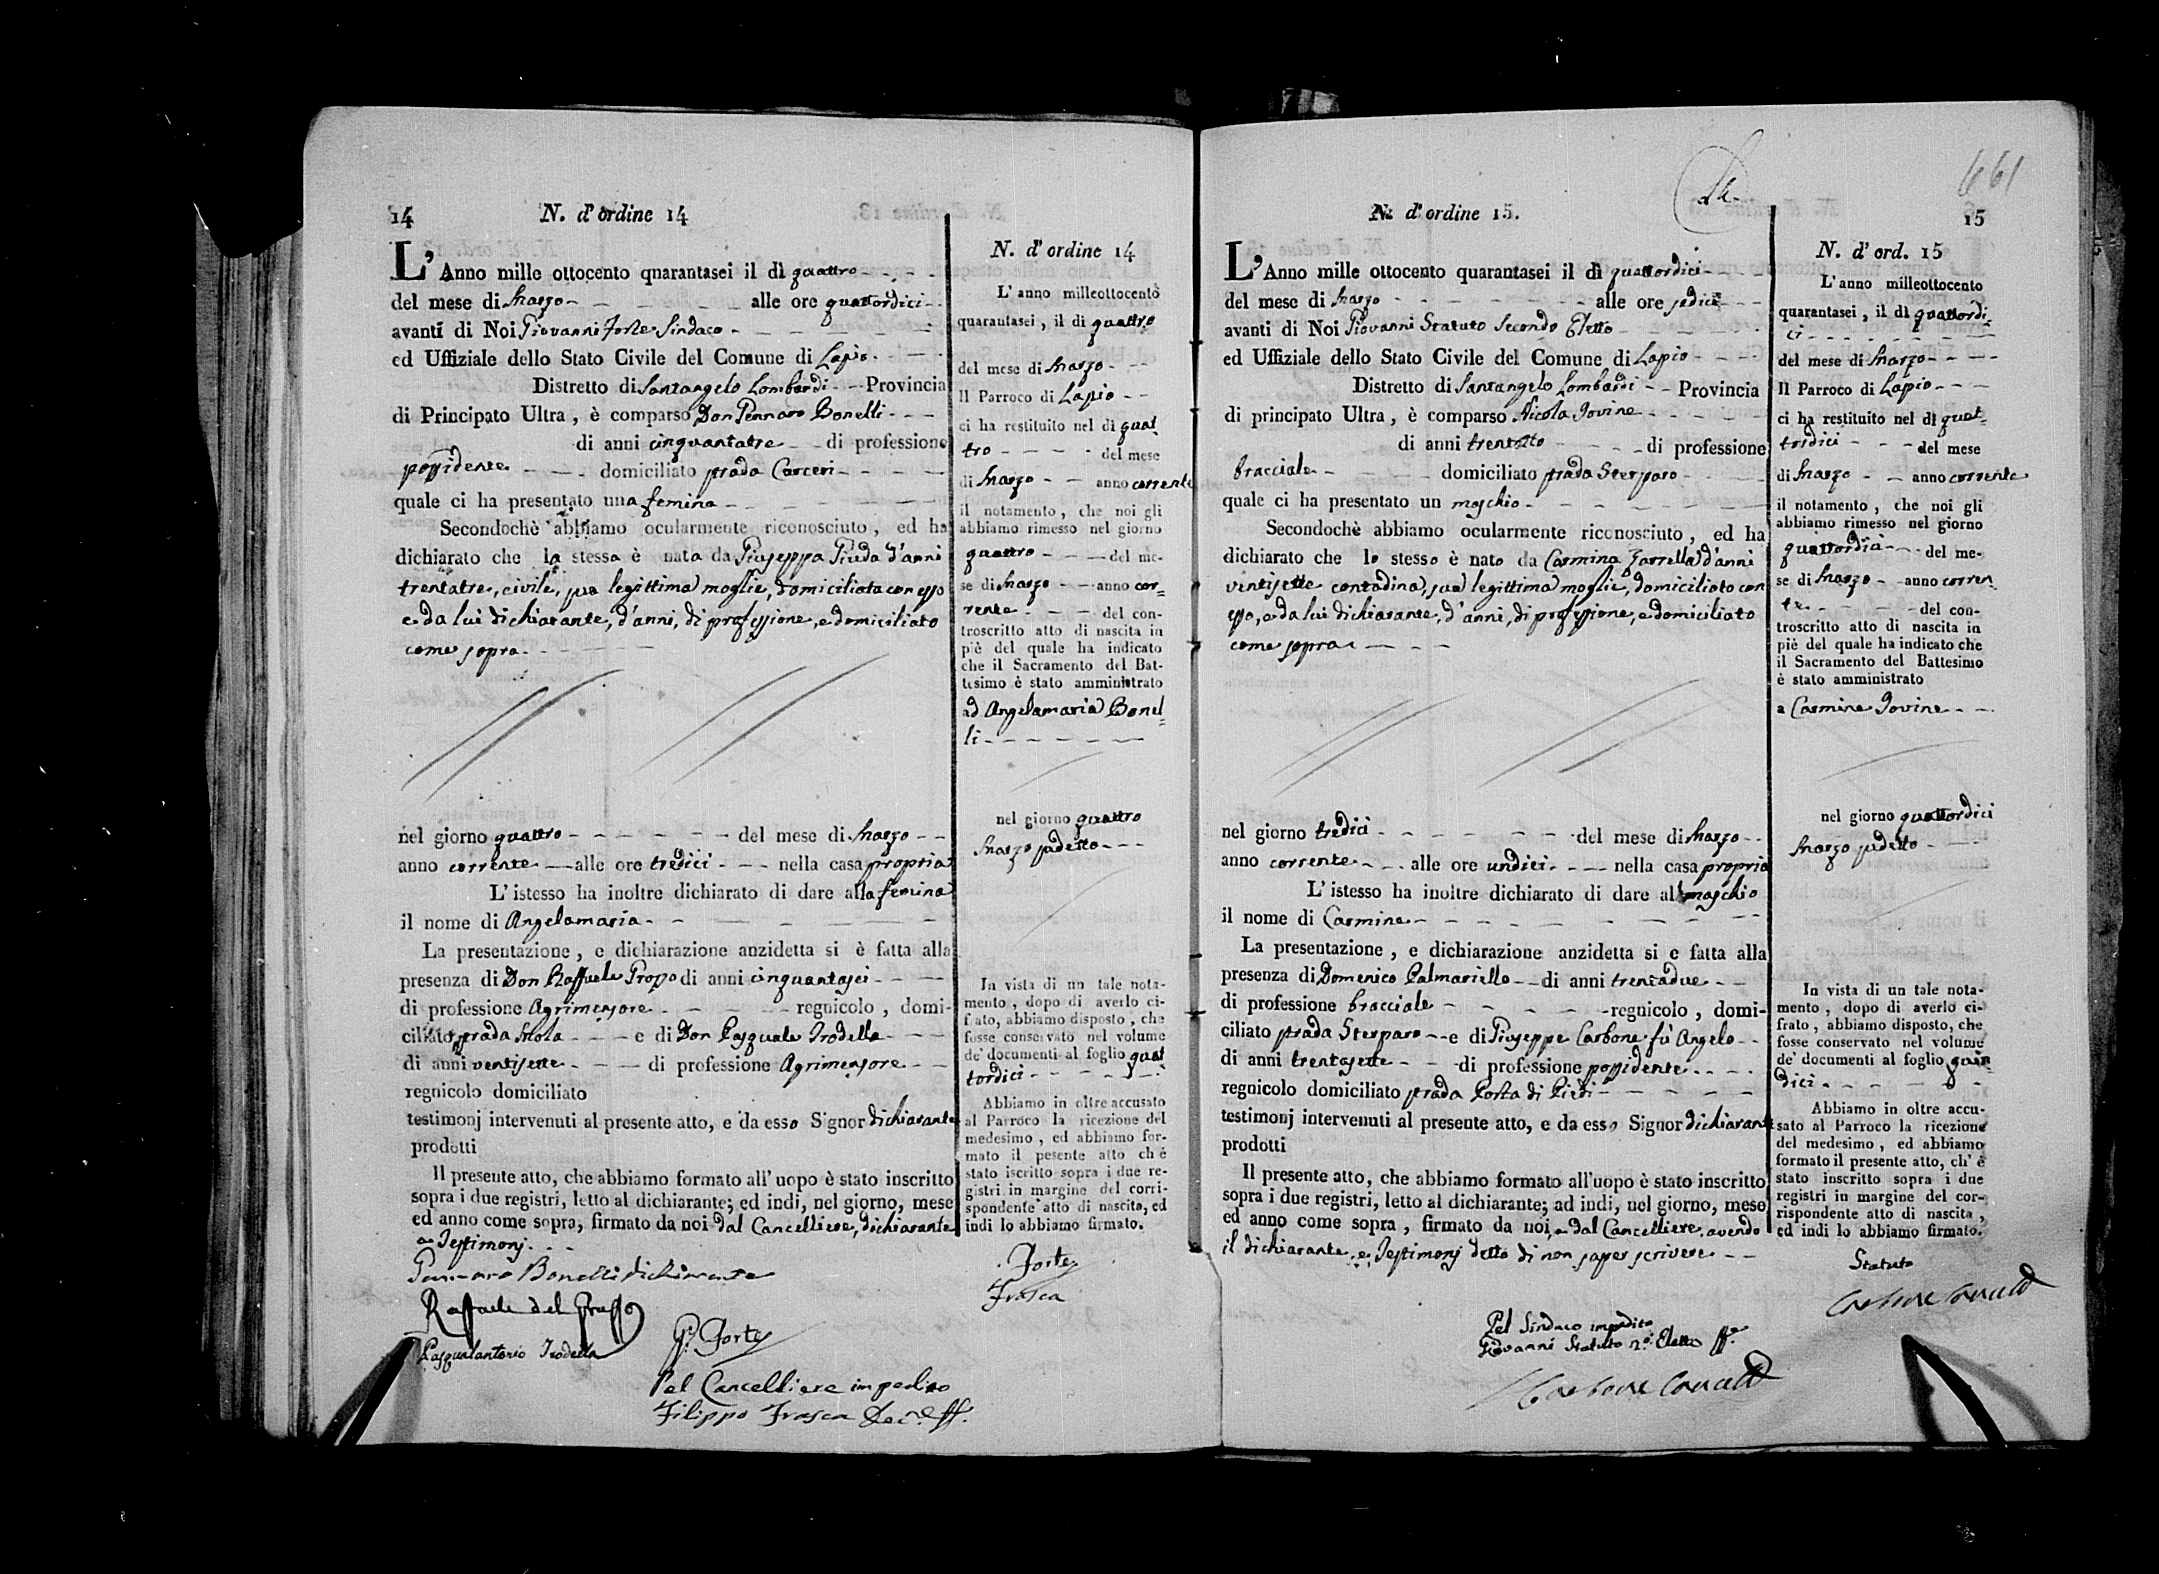 14
N. d'ordine 14
L'Anno mille ottocento quarantasei il dì quattro
del mese di Marzo alle ore quattordici
avanti di Noi Giovanni Forte Sindaco
ed Uffiziale dello Stato Civile del Comune di Lapio
Distretto di Santangelo Lombardi Provincia
di Principato Ultra, è comparso Don Gennaro Bonelli
di anni cinquantatre di professione
possidente domiciliato strada Carceri
quale ci ha presentato una femina
Secondochè abbiamo ocularmente riconosciuto, ed ha
dichiarato che la stessa è nata da Giuseppa d'anni
trentatre, civile, sua legittima moglie, domiciliata con esso
e da lui dichiarante, d'anni, di professione, e domiciliato
come sopra
nel giorno quattro del mese di Marzo
anno corrente alle ore tredici nella casa propria
L'istesso ha inoltre dichiarato di dare alla femina
il nome di Angelamaria
La presentazione, e dichiarazione anzidetta si è fatta alla
presenza di Don Raffaele di anni cinquantasei
di professione Agrimensore regnicolo, domi-
ciliato strada e di Don Pasquale Trodella
di anni ventisette di professione Agrimensore
regnicolo domiciliato
testimonj intervenuti al presente atto, e da esso Signor dichiarante
prodotti
Il presente atto, che abbiamo formato all'uopo è stato inscritto
sopra i due registri, letto al dichiarante; ed indi, nel giorno, mese
ed anno come sopra, firmato da noi dal Cancelliere, dichiarante
e Testimonj
Gennaro Bonelli dichiarante
Raffaele del
Pasqualantonio Trodella
Gi. Forte
Pel Cancelliere impedito
Filippo Frasca ff.
N. d'ordine 14
L'anno milleottocento
quarantasei, il dì quattro
del mese di Marzo
Il Parroco di Lapio
ci ha restituito nel dì quat
tro del mese
di Marzo anno corrente
il notamento, che noi gli
abbiamo rimesso nel giorno
quattro del me-
se di Marzo anno cor=
rente del con-
troscritto atto di nascita in
piè del quale ha indicato
che il Sacramento del Bat-
tesimo è stato amministrato
ad Angelamaria Bonel=
li
nel giorno quattro
Marzo sudetto
In vista di un tale nota-
mento, dopo di averlo ci-
frato, abbiamo disposto, che
fosse conservato nel volume
de' documenti al foglio quat
tordici
Abbiamo in oltre accusato
al Parroco la ricezione del
medesimo, ed abbiamo for-
mato il pesente atto ch'è
stato iscritto sopra i due re-
gistri in margine del corri-
spondente atto di nascita, ed
indi lo abbiamo firmato.
Forte
Frasca
661
15
N. d'ordine 15.
L'Anno mille ottocento quarantasei il dì quattordici
del mese di Marzo alle ore sedici
avanti di Noi Giovanni Statuto Secondo Eletto
ed Uffiziale dello Stato Civile del Comune di Lapio
Distretto di Santangelo Lombardi Provincia
di principato Ultra, è comparso Nicola Iovine
di anni trentotto di professione
bracciale domiciliato strada Sterparo
quale ci ha presentato un maschio
Secondochè abbiamo ocularmente riconosciuto, ed ha
dichiarato che lo stesso è nato da Carmina Zarrella d'anni
ventisette contadina, sua legittima moglie, domiciliato con
esso, e da lui dichiarante, d'anni, di professione, e domiciliato
come sopra
nel giorno tredici del mese di Marzo
anno corrente alle ore undici nella casa propria
L'istesso ha inoltre dichiarato di dare al maschio
il nome di Carmine
La presentazione, e dichiarazione anzidetta si e fatta alla
presenza di Domenico Palmariello di anni trentadue
di professione bracciale regnicolo, domi-
ciliato strada Sterparo e di Giuseppe Carbone fù Angelo
di anni trentasette di professione possidente
regnicolo domiciliato strada Porta di Piedi
testimonj intervenuti al presente atto, e da esso Signor dichiarante
prodotti
Il presente atto, che abbiamo formato all'uopo è stato inscritto
sopra i due registri, letto al dichiarante; ad indi, nel giorno, mese
ed anno come sopra, firmato da noi, e dal Cancelliere, avendo
il dichiarante, e Testimonj detto di non saper scrivere
Pel Sindaco impedito
Giovanni Statuto 2.º Eletto ff.
N. d'ord. 15
L'anno milleottocento
quarantasei, il dì quattordi=
ci
del mese di Marzo
Il Parroco di Lapio
ci ha restituito nel dì quat=
tordici del mese
di Marzo anno corrente
il notamento, che noi gli
abbiamo rimesso nel giorno
quattordici del me-
se di Marzo anno corren
te del con-
troscritto atto di nascita in
piè del quale ha indicato che
il Sacramento del Battesimo
è stato amministrato
a Carmine Iovine
nel giorno quattordici
Marzo sudetto
In vista di un tale nota-
mento, dopo di averlo ci-
frato, abbiamo disposto, che
fosse conservato nel volume
de' documenti al foglio quin
dici
Abbiamo in oltre accu-
sato al Parroco la ricezione
del medesimo, ed abbiamo
formato il presente atto, ch'è
stato inscritto sopra i due
registri in margine del cor-
rispondente atto di nascita,
ed indi lo abbiamo firmato.
Statuto